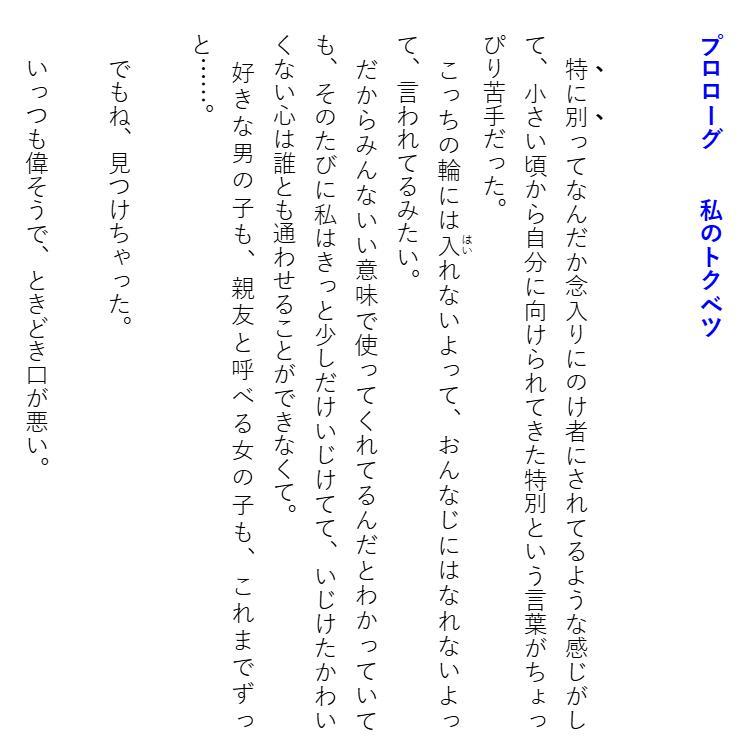 プロローグ　私のトクベツ
特に別ってなんだか念入りにのけ者にされてるような感じがし
て、小さい頃から自分に向けられてきた特別という言葉がちょっ
ぴり苦手だった。
こっちの輪には入れないよって、おんなじにはなれないよっ
て、言われてるみたい。
だからみんないい意味で使ってくれてるんだとわかっていて
も、そのたびに私はきっと少しだけいじけてて、いじけたかわい
くない心は誰とも通わせることができなくて。
好きな男の子も、親友と呼べる女の子も、これまでずっ
と……。
でもね、見つけちゃった。
いっつも偉そうで、ときどき口が悪い。